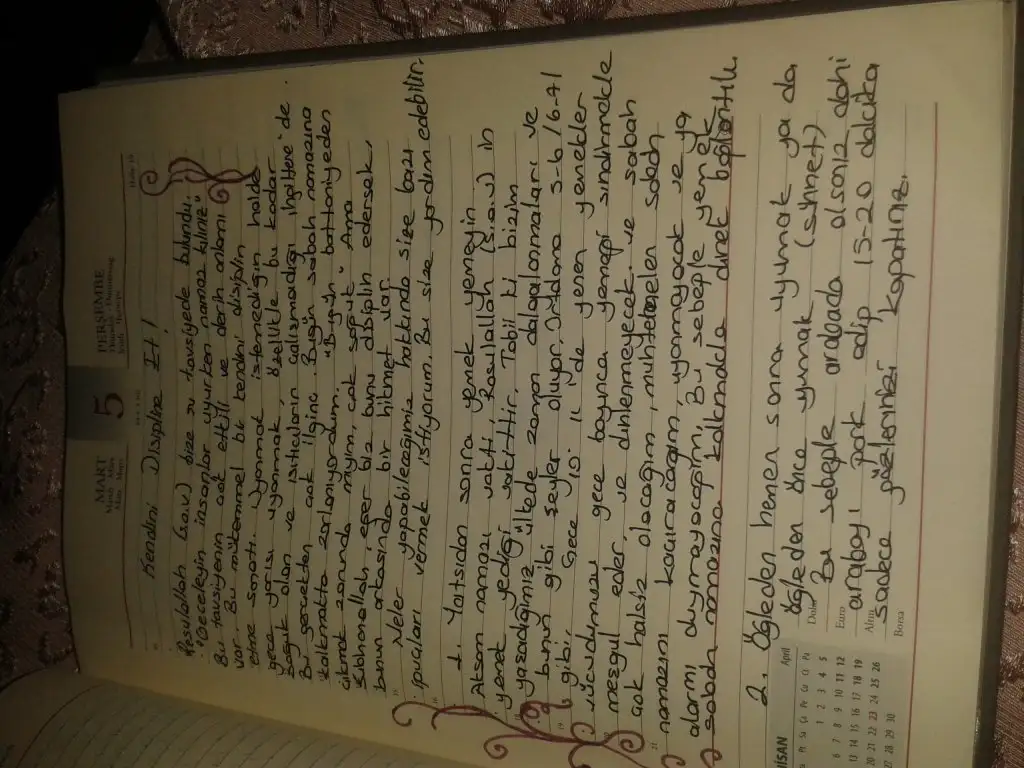 MART
5
PERŞEMBE
Kendini Disipline Et!
Resulallah (s.a.v) bize şu tavsiyede bulundu.
"Geceleyin insanlar uyurken namaz kılınız"
Bu tavsiyenin çok etkili ve derin anlamı
var. Bu mükemmel bir kendini disiplin
etme sanatı. Uyanmak istemediğin halde
gece yarısı uyanmak, özellikle bu kadar
soğuk olan ve ısıtıcıların çalışmadığı İngiltere'de.
Bu gerçekten çok ilginç. Bugün sabah namazına
kalkmakta zorlanıyordum. "Bugün battaniyeden
çıkmak zorunda mıyım, çok soğuk" Ama
Sübhanallah, eğer biz bunu disiplin edersek,
bunun arkasında bir hikmet var.
Neler yapabileceğimiz hakkında size bazı
ipuçları vermek istiyorum. Bu size yardım edebilir.
1. Yatsıdan sonra yemek yemeyin
Akşam namazı vakti, Rasulallah (s.a.v) in
yemek yediği vakittir. Tabii ki bizim
yaşadığımız ülkede zaman dalgalanmaları ve
bunun gibi şeyler oluyor. Ortalama 5-6/6-7
gibi. Gece 10- 11 de yesen yemekler
vücudumuzu gece boyunca yemeği sindirmekle
meşgul eder, ve dinlenmeyecek ve sabah
çok halsiz olacağım, muhtemelen sabah
namazını kaçıracağım, uyanmayacak ve ya
alarmı duymayacağım, Bu sebeple yemek
sabah namazına kalkmakla direk bağlantılı.
2. Öğleden hemen sonra uyumak ya da
Öğleden önce uyumak (sünnet)
Bu sebeple arabada olsanız dahi
arabayı park edip 15-20 dakika
sadece gözlerinizi kapatınız.
NİSAN April
Pt Sa Ça Pe Cu Ct Pa
1 2 3 4 5
6 7 8 9 10 11 12
13 14 15 16 17 18 19
20 21 22 23 24 25 26
27 28 29 30
Dolar
Euro
Altın
Borsa